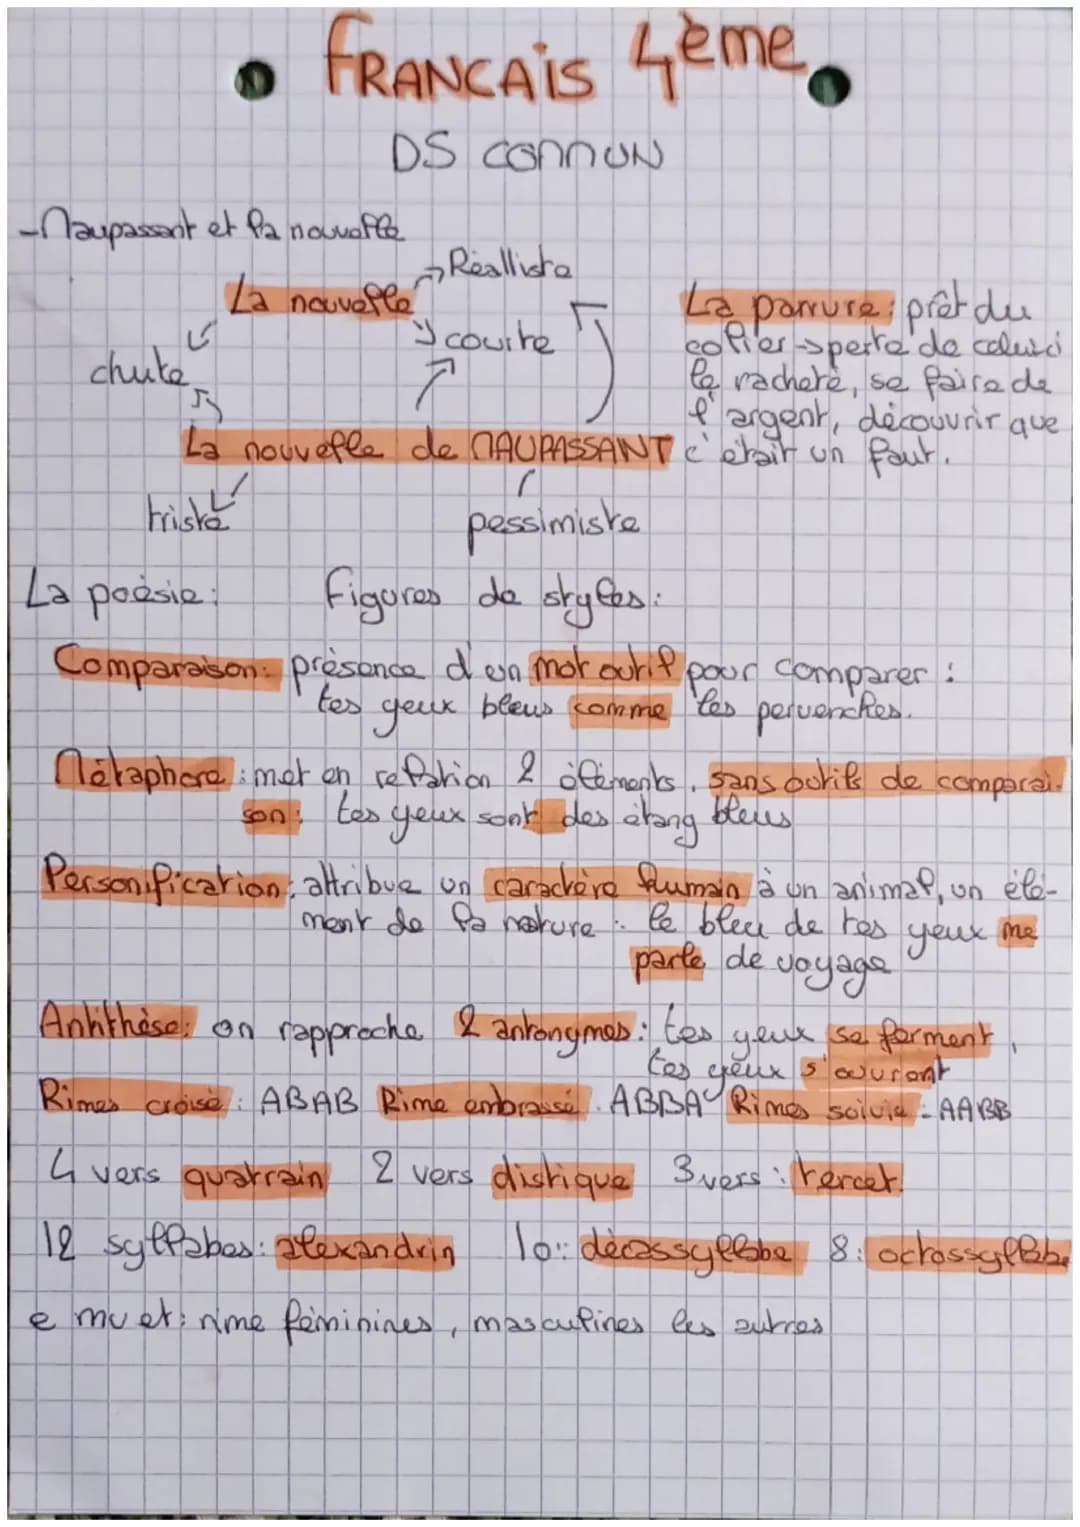 FRANCAIS 4ème
DS COMMUN
-Maupassant et la nouvelle
Réalliste
La nouvelle
courte
chute
La nouvelle de MAUPASSANT
triste
pessimiste
La parrure: prêt du
collier → perte de celui ci
le racheté, se faire de
l'argent, découvrir que
c'était un faut.
La poésie: figures de styles:
Comparaison: présence d'un mot outil pour comparer :
tes yeux bleus comme les pervenches.
Métaphore : met en relation 2 éléments, sans outils de comparai-
son: tes yeux sont des étang bleus
Personification: attribue un caractère humain à un animal, un élé-
ment de la nature : le bleu de tes yeux me
parle de voyage
Antithèse: on rapproche 2 antonymes: tes yeux se ferment,
tes yeux s'ouvrent
Rimes croisé: ABAB Rime embrassé. ABBA Rimes suivie: AABB
4 vers quatrain 2 vers distique 3 vers : tercet
12 syllabes: alexandrin 10: décassyllabe 8: octossyllabe
e muet: rime féminines, masculines les autres